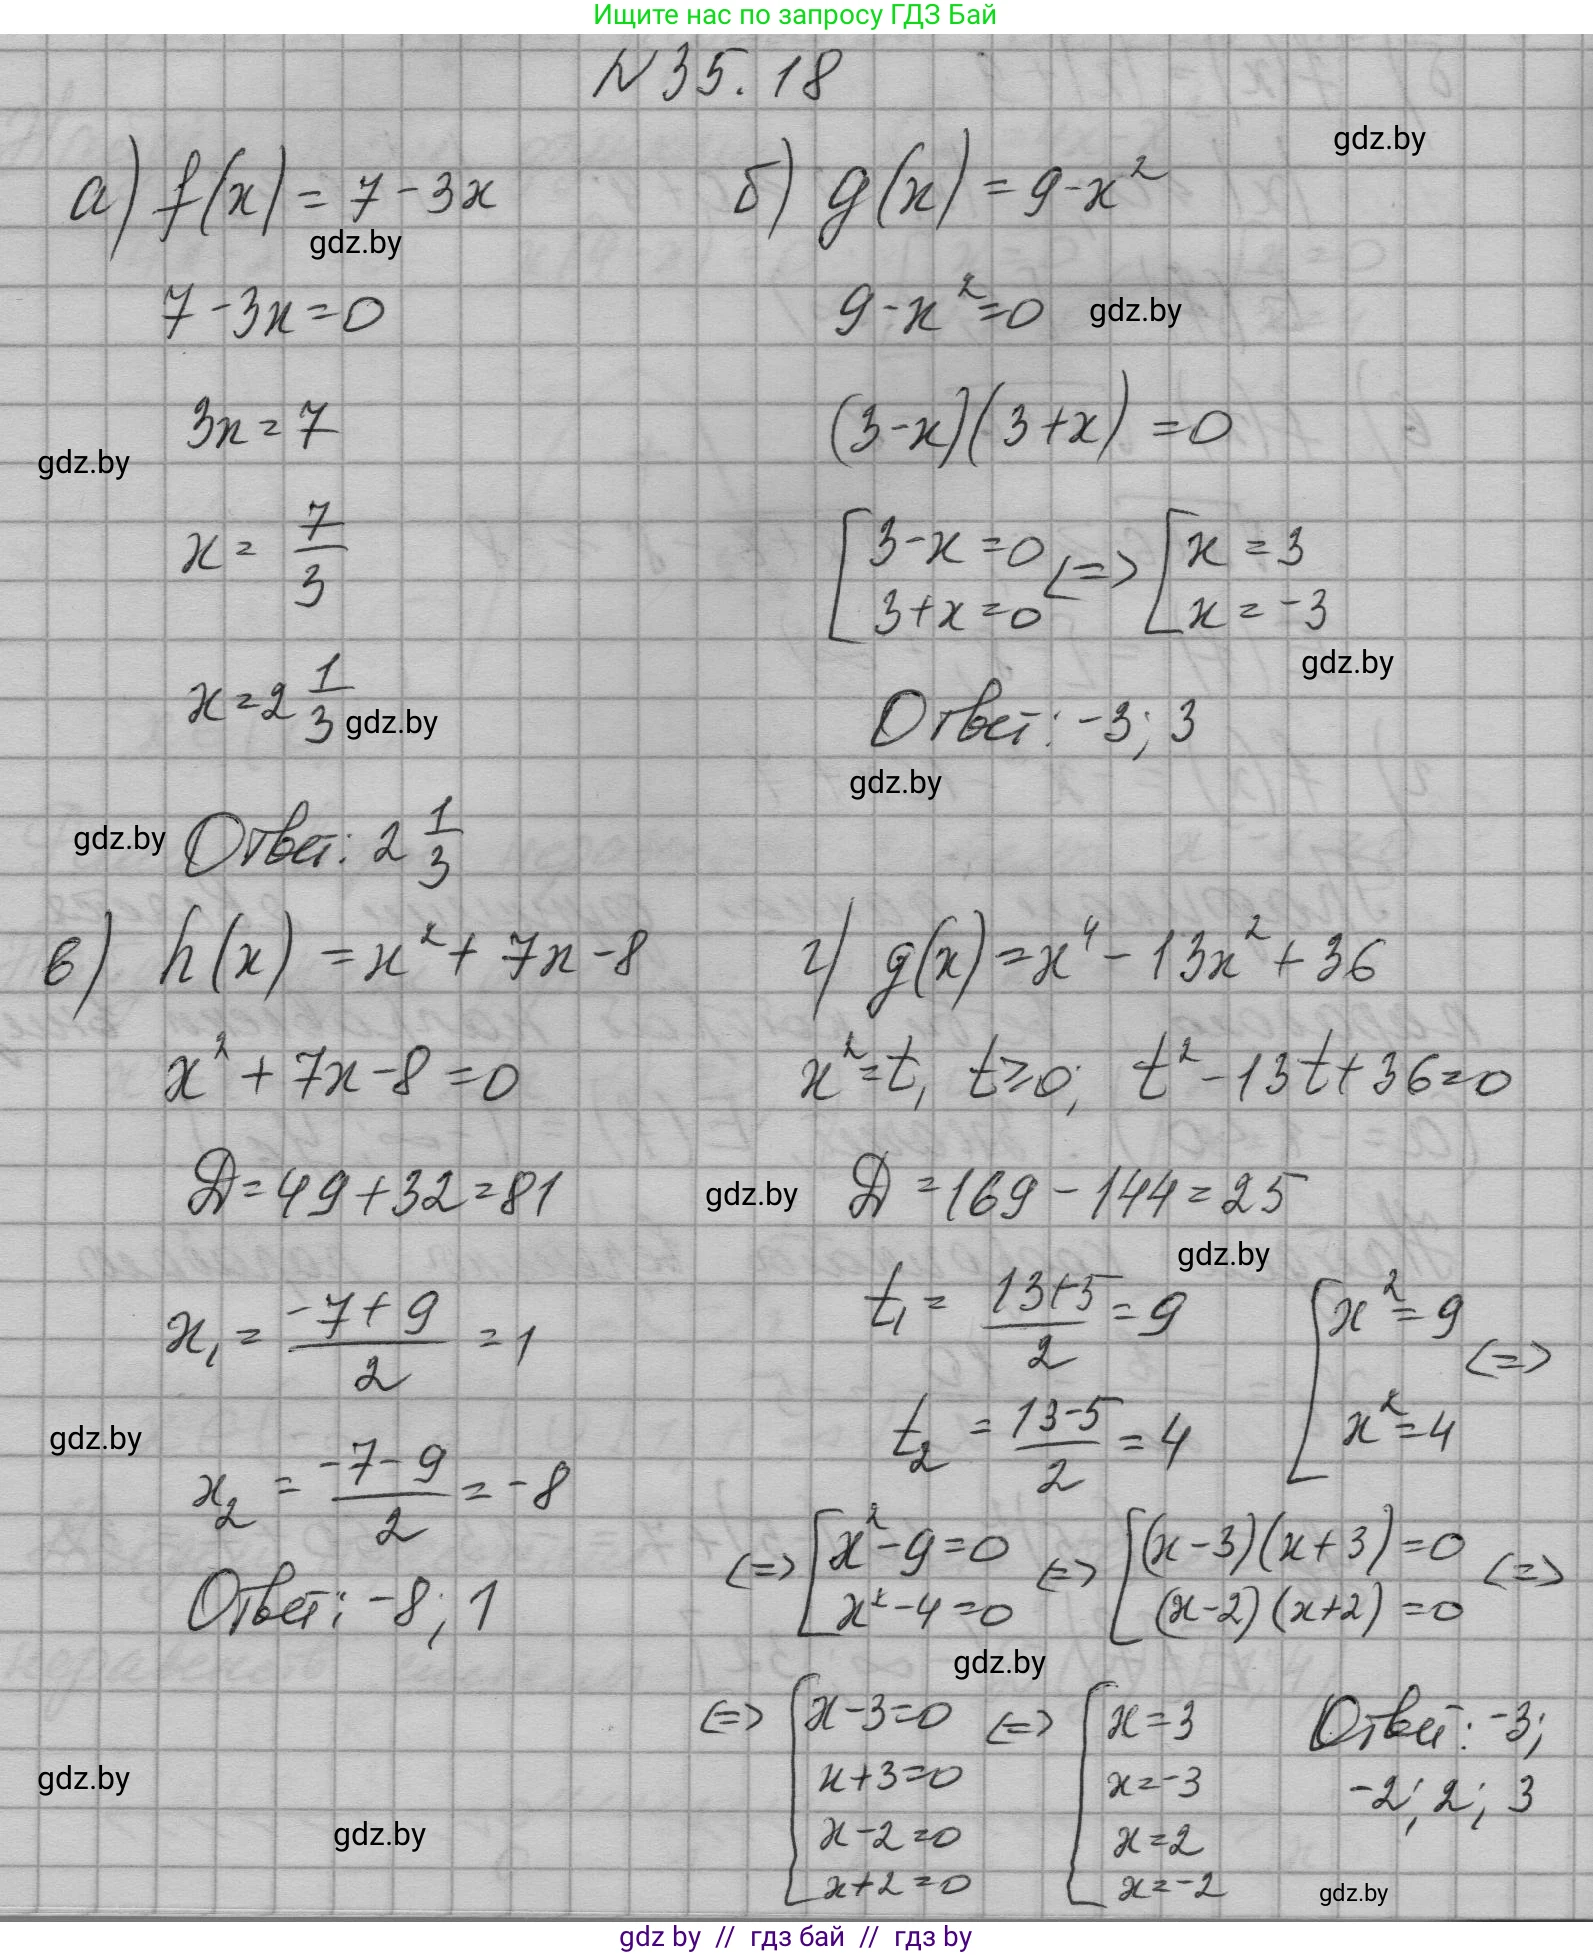 Ищите нас по запросу ГДЗ Бай
N 35.18
gdz.by
а) f(x) = 7 - 3x
gdz.by
7 - 3x = 0
3x = 7
gdz.by
x = 7/3
x = 2 1/3
gdz.by
gdz.by
Ответ: 2 1/3
б) g(x) = 9 - x²
9 - x² = 0
gdz.by
(3 - x)(3 + x) = 0
[3 - x = 0 <=> [x = 3
3 + x = 0 x = -3
gdz.by
Ответ: -3; 3
gdz.by
в) h(x) = x² + 7x - 8
x² + 7x - 8 = 0
D = 49 + 32 = 81
x₁ = (-7 + 9)/2 = 1
gdz.by
x₂ = (-7 - 9)/2 = -8
Ответ: -8; 1
г) g(x) = x⁴ - 13x² + 36
x² = t, t ≥ 0; t² - 13t + 36 = 0
gdz.by
D = 169 - 144 = 25
gdz.by
t₁ = (13 + 5)/2 = 9 [x² = 9 <=>
t₂ = (13 - 5)/2 = 4 x² = 4
<=> [x² - 9 = 0 <=> [(x - 3)(x + 3) = 0 <=>
x² - 4 = 0 (x - 2)(x + 2) = 0
gdz.by
<=> [x - 3 = 0 <=> [x = 3 Ответ: -3;
x + 3 = 0 x = -3 -2; 2; 3
x - 2 = 0 x = 2
x + 2 = 0 x = -2
gdz.by
gdz.by
gdz.by
gdz.by // гдз бай // гдз by